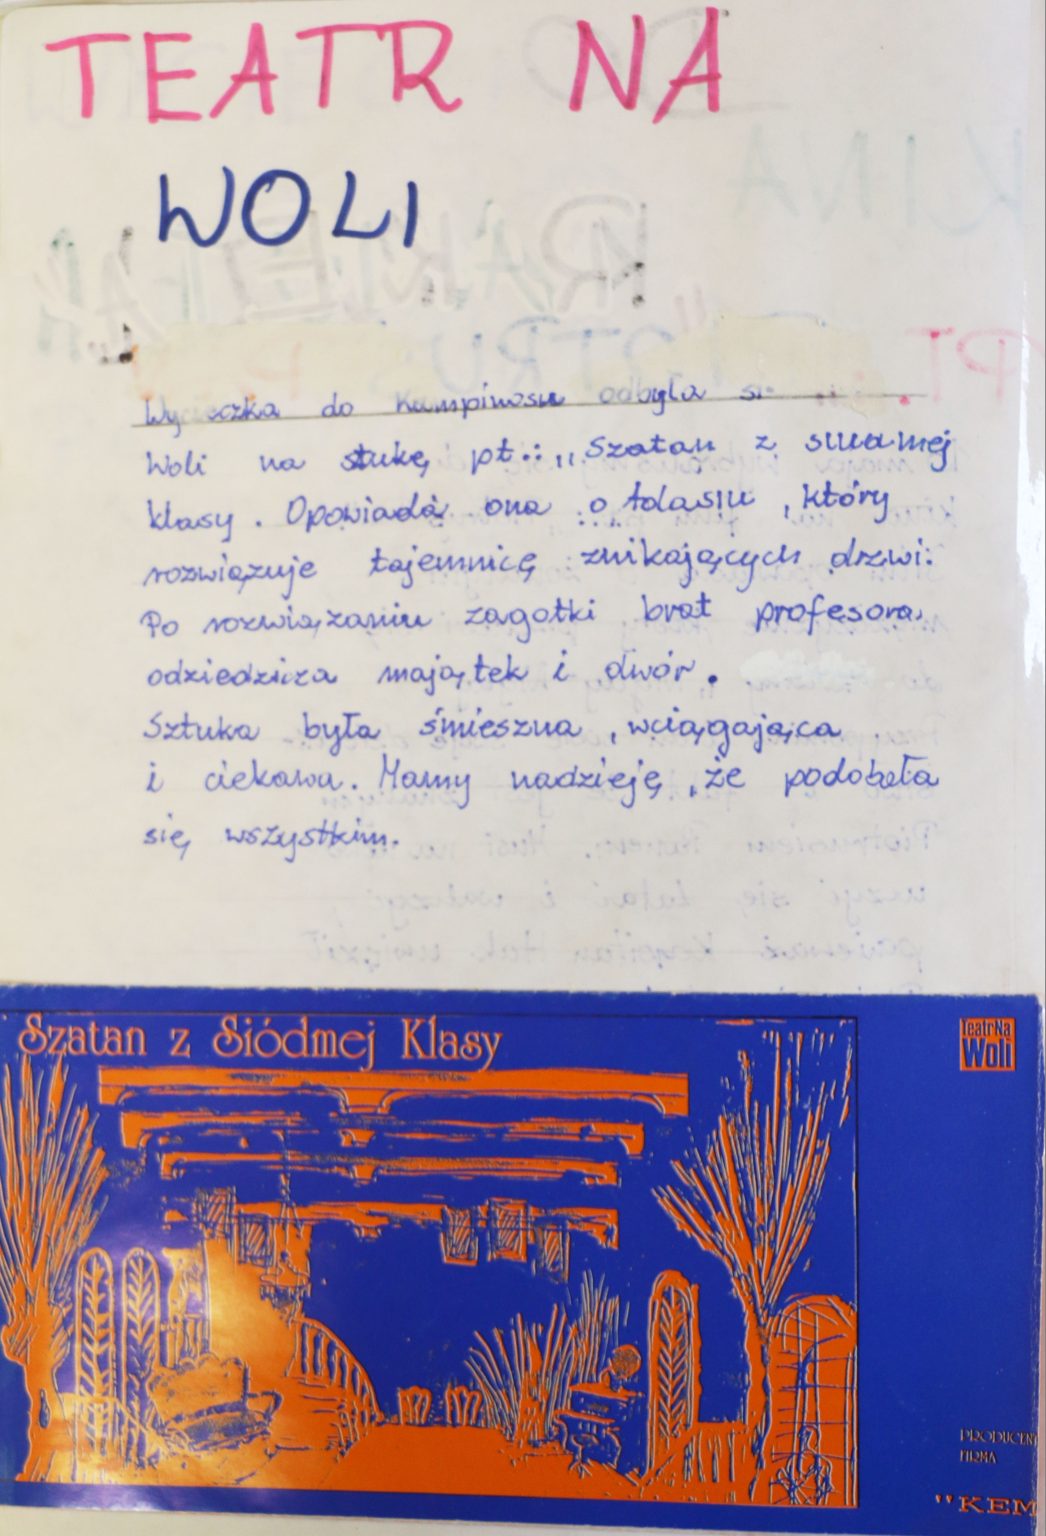 TEATR NA
WOLI
Wycieczka do Kampinosu odbyła si
Woli na stukę pt.: "Szatan z siudmej
klasy. Opowiada ona o Adasiu, który
rozwiązuje tajemnicę znikających drzwi.
Po rozwiązaniu zagotki brat profesora
odziedzicza majątek i dwór.
Sztuka była śmieszna, wciągająca
i ciekawa. Mamy nadzieję, że podobała
się wszystkim.
Szatan z Siódmej Klasy
Teatr Na
Woli
PRODUCEN
FIRMA
"KEM